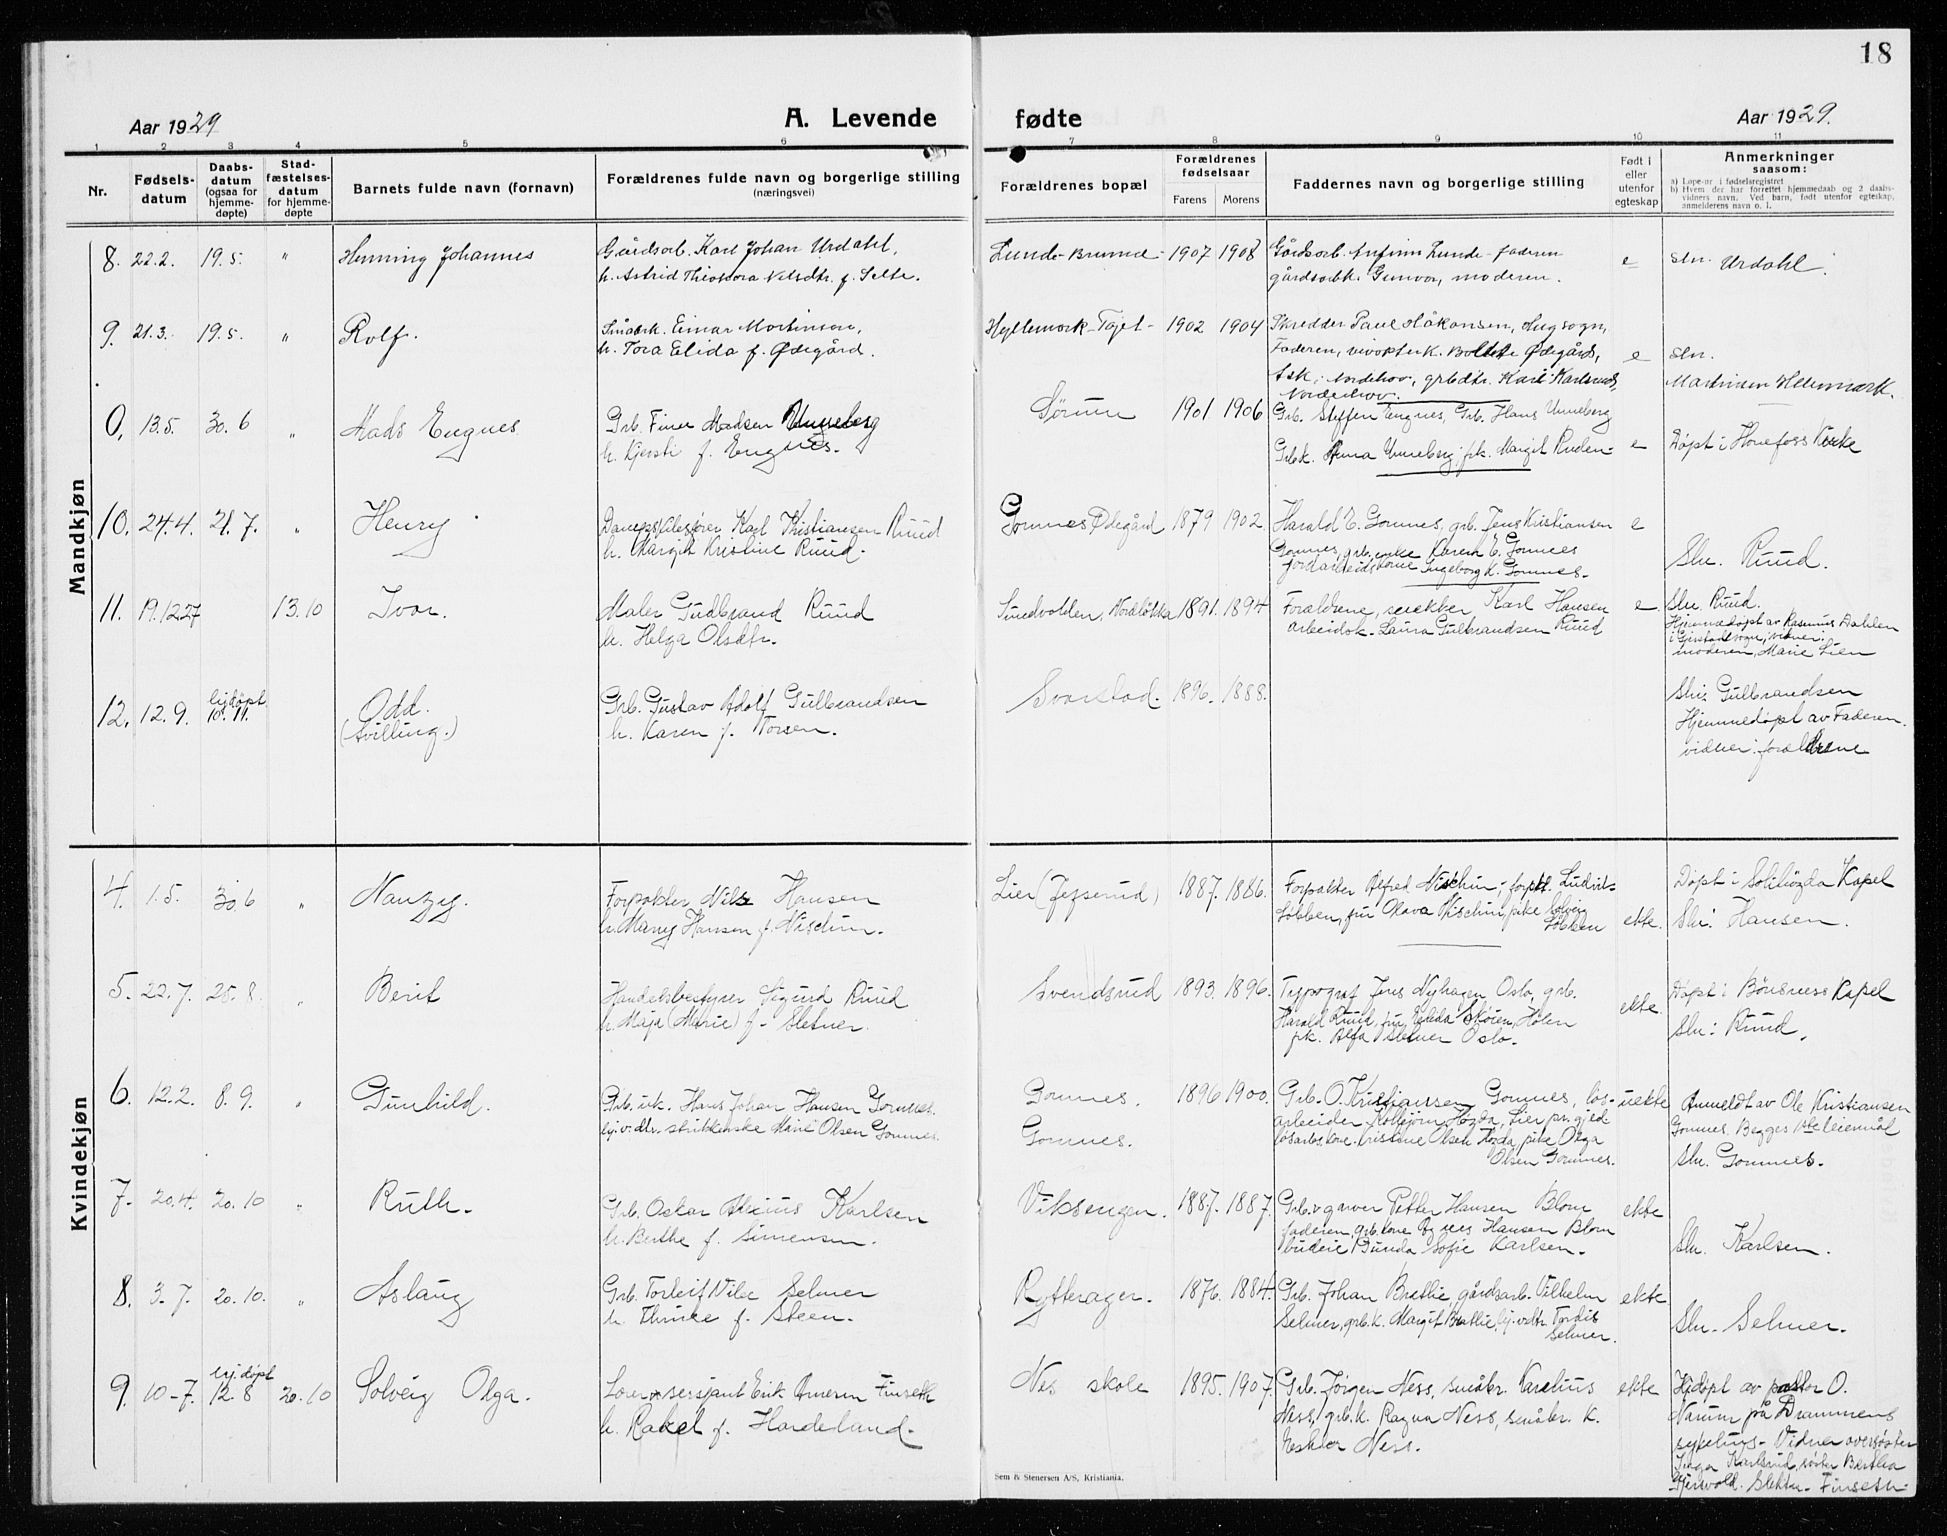 18
Aar 1929
A. Levende fødte
Aar 1929.
1 2 3 4 5 6 7 8 9 10 11
Nr.
Fødsels-
datum
Daabs-
datum
(ogsaa for
hjemme-
døpte)
Stad-
fæstelses-
datum
for hjemme-
døpte
Barnets fulde navn (fornavn)
Forældrenes fulde navn og borgerlige stilling
(næringsvei)
Forældrenes bopæl
Forældrenes
fødselsaar
Farens Morens
Faddernes navn og borgerlige stilling
Født i
eller
utenfor
egteskap
Anmerkninger
saasom:
a) Løpe-nr i fødselsregistret
b) Hvem der har forrettet hjemmedaab og 2 daabs-
vidners navn. Ved barn, født utenfor egteskap,
anmelderens navn o. l.
Mandkjøn
8. 22.2. 19.5. " Henning Johannes
Gårdsarb. Karl Johan Urdahl,
h. Astrid Theodora Nilsdtr. f. Selte.
Lunde-Bruund 1907 1908
Gårdsarb. Anfinn Lunde - faderen
gårdsarbk. Gunvor, moderen.
e
Sln. Urdahl.
9. 21.3. 19.5. " Rolf.
Småbrk. Einar Mortinsen,
h. Tora Elida f. Ødegård.
Hyllemork-Tajet 1902 1904
Skredder Paul Håkonsen, Haugsogn,
Faderen, Ødegård,
Ask, Norderhov, grbdtr. Kari Karlsrud,
Norderhov.
e
Sln.
Martinsen
0. 13.5. 30.6 " Mads Engnes
Grb. Finn Madsen Unneberg
h. Kjersti f. Engnes.
Sørum 1901 1906
Grb. Steffen Engnes, Grb. Hans Unneberg
Grbk. Anna Unneberg, pk. Margit Ruden
e
Døpt i Hønefoss Kirke
10. 24.4. 21.7. " Henry
Karl Kristiansen Ruud
h. Margit Kristine Ruud.
Gomnes Ødegård 1879 1902
Harald E. Gomnes, grb. Jens Kristiansen
Gomnes, grb. enke Karen E. Gomnes
jordarbeiderkone Ingeborg K. Gomnes.
e
Sln. Ruud.
11. 19.12.27 13.10 Ivar.
Maler Gudbrand Ruud
h. Helga Olsdtr.
Sundvolden, Nordløkka 1891. 1894.
Foreldrene, snekker Karl Hansen
arbeidsk. Laura Gulbrandsen Ruud
e
Sln. Ruud.
Hjemmedøpt av Rasmus Dahlen
vidner:
moderen, Marie Lien
12. 12.9. hj.døpt 10.11.
Odd.
(tvilling.)
Grb. Gustav Adolf Gulbrandsen
h. Karen f. Torsen.
Svarstad. 1896. 1888.
Sln: Gulbrandsen
Hjemmedøpt av Faderen.
vidner: foreldrene
Kvindekjøn
4. 1.5. 30.6 " Nanzy.
Forpakter Nils Hansen
h. Mary Hansen f. Nischin.
Lier (Jegserud) 1887. 1886.
Forpakter Alfred Nischin, forpkt. Ludvik
Løbben, fru Olava Nischin, pike Solveig
Løbben
ekte.
Døpt i Solihøgda Kapel
Sln: Hansen.
5. 22.7. 25.8. " Berit
Handelsbestyrer Sigurd Ruud
h. Maja (Marie) f. Sletner.
Svendsrud 1893. 1896.
Typograf Jens Nyhagen Oslo, grb.
Harald Ruud, fru Skøien, Holen
pk. Alfa Oslo.
ekte.
Døpt i Bønsnes Kapel
Sln: Ruud.
6. 12.2. 8.9. " Gunhild.
Grb. uk. Hans Johan Hansen Gomnes.
hj.v. dtr. Marie Olsen Gomnes.
Gomnes. 1896 1900.
Gomnes.
Grb. O. Kristiansen Gomnes, løs-
arbeider Kolbjørn Høgda, Lier pr. gjeld
løsarb.kone Kristine Olsen Høgda, pike Olga
Olsen Gomnes.
uekte
Anmeldt av Ole Kristiansen
Gomnes. Begges 1ste leiermål
Sln. Gomnes.
7. 20.4. 20.10 " Ruth.
Grb. Oskar Karlsen
h. Berthe f. Simensen.
Viksengen. 1887. 1887.
Grb. garver Petter Hansen Blom
faderen, grb. kone Agnes Hansen Blom
budeie Gunda Sofie Karlsen.
ekte
Sln. Karlsen.
8. 3.7. 20.10. " Aslaug
Grb. Torleif Nils Selmer
h. Thrine f. Steen.
Rytterager. 1876. 1884.
Grb. Johan Brethe, gårdsarb. Vilhelm
Selmer, grb. k. Margit Brethe, hj.v. dtr. Tordis
Selmer.
ekte
Sln. Selmer.
9. 10-7. hj.døpt 12.8 20.10 Solveig Olga.
Lærer, sersjant Erik Finseth
h. Rakel f. Hardeland.
Nes skole 1895. 1907.
Grb. Jørgen Ness, småbr. Karelius
Ness, grb. k. Ragna Ness, småbr. k.
Ness.
ekte
Hjdøpt av pastor O.
Narum på Drammens
sykehus. Vidner oversøster
Inga Karlsrud, søster Berthea
Gjersvold. Slektn. Finseth.
Sem & Stenersen A/S, Kristiania.